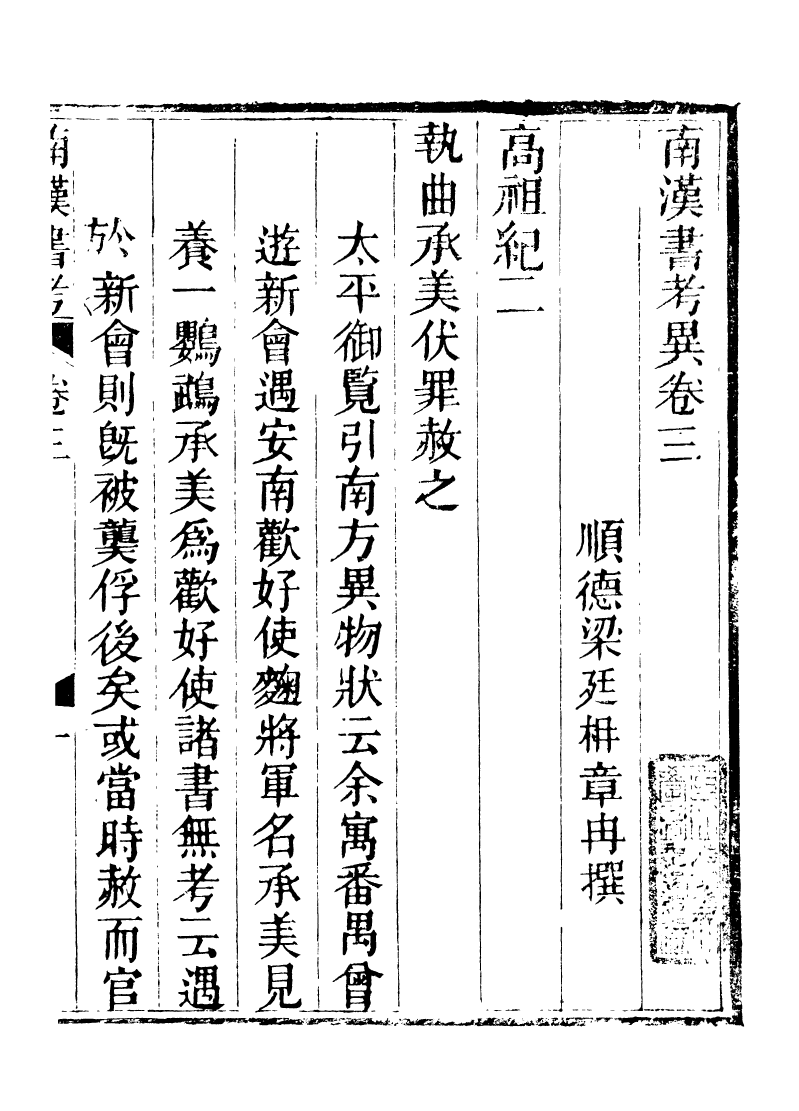 南漢書考異卷三
順德梁廷枏章冉撰
高祖紀二
執曲承美伏罪赦之
太平御覧引南方異物狀云余寓番禺曾
遊新會遇安南歡好使麴將軍名承美見
養一鸚鵡承美爲歡好使諸書無考云遇
於新會則旣被龑俘後矣或當時赦而官
南漢書考 卷三 一